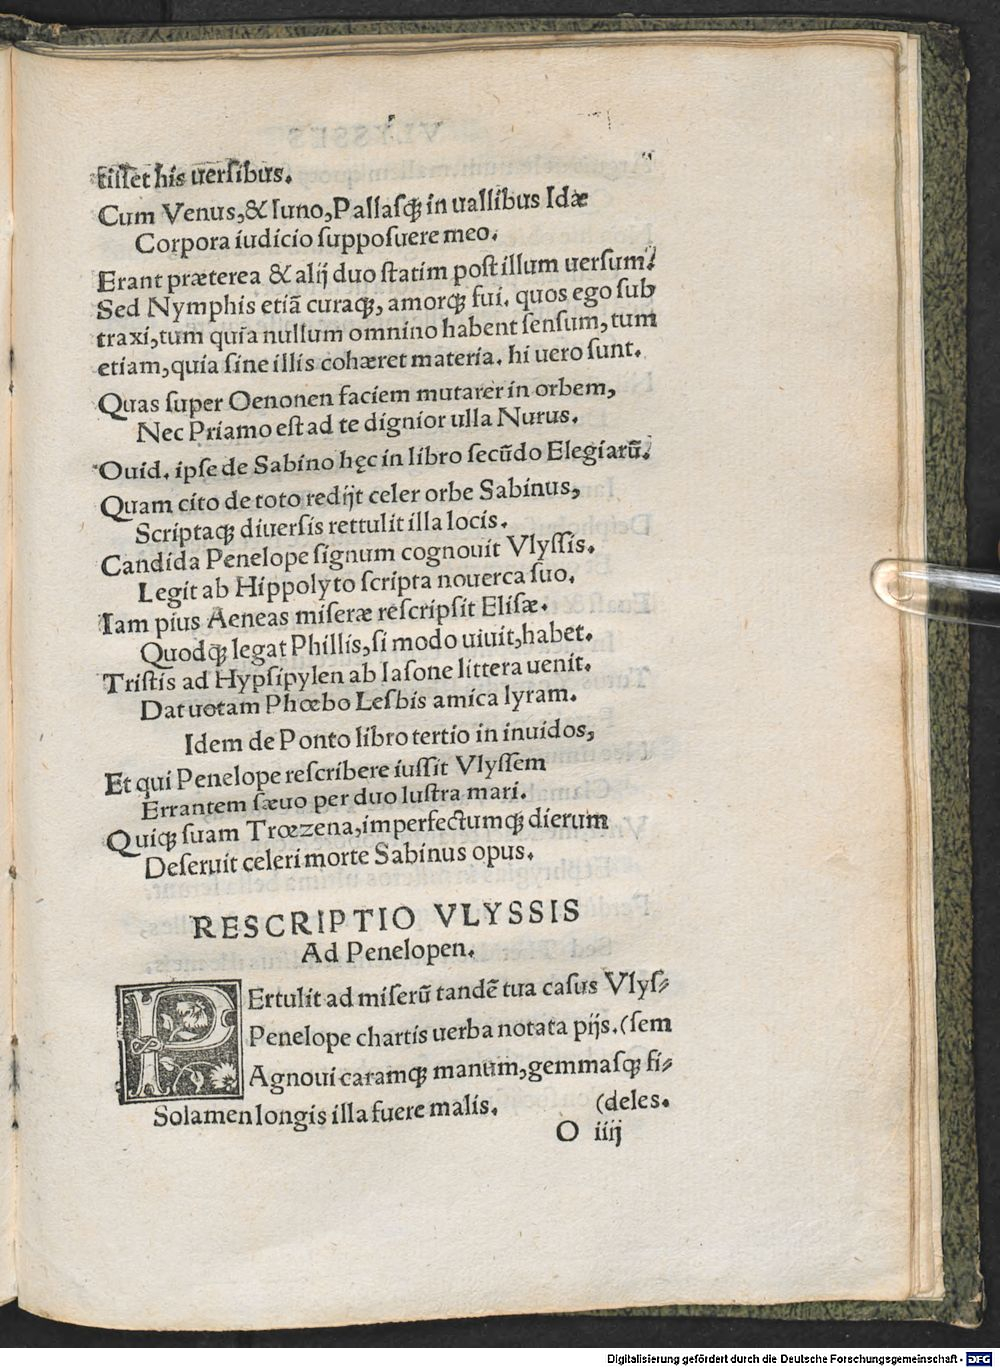 tisset his uersibus.
Cum Venus, & Iuno, Pallasqꝫ in uallibus Idæ
Corpora iudicio supposuere meo.
Erant præterea & alij duo statim post illum uersum?
Sed Nymphis etiã curaqꝫ, amorqꝫ fui. quos ego sub
traxi, tum quia nullum omnino habent sensum, tum
etiam, quia sine illis cohæret materia. hi uero sunt.
Quas super Oenonen faciem mutarer in orbem,
Nec Priamo est ad te dignior ulla Nurus.
Ouid. ipse de Sabino hęc in libro secũdo Elegiarũ.
Quam cito de toto redijt celer orbe Sabinus,
Scriptaqꝫ diuersis rettulit illa locis.
Candida Penelope signum cognouit Vlyssis.
Legit ab Hippolyto scripta nouerca suo.
Iam pius Aeneas miseræ rescripsit Elisæ.
Quodqꝫ legat Phillis, si modo uiuit, habet.
Tristis ad Hypsipylen ab Iasone littera uenit.
Dat uotam Phœbo Lesbis amica lyram.
Idem de Ponto libro tertio in inuidos,
Et qui Penelope rescribere iussit Vlyssem
Errantem sæuo per duo lustra mari.
Quiqꝫ suam Trœzena, imperfectumqꝫ dierum
Deseruit celeri morte Sabinus opus.
RESCRIPTIO VLYSSIS
Ad Penelopen.
PErtulit ad miserũ tandẽ tua casus Vlys⸗
Penelope chartis uerba notata pijs. (sem
Agnoui caramqꝫ manum, gemmasqꝫ fi⸗
Solamen longis illa fuere malis. (deles.
O iiij
Digitalisierung gefördert durch die Deutsche Forschungsgemeinschaft - DFG